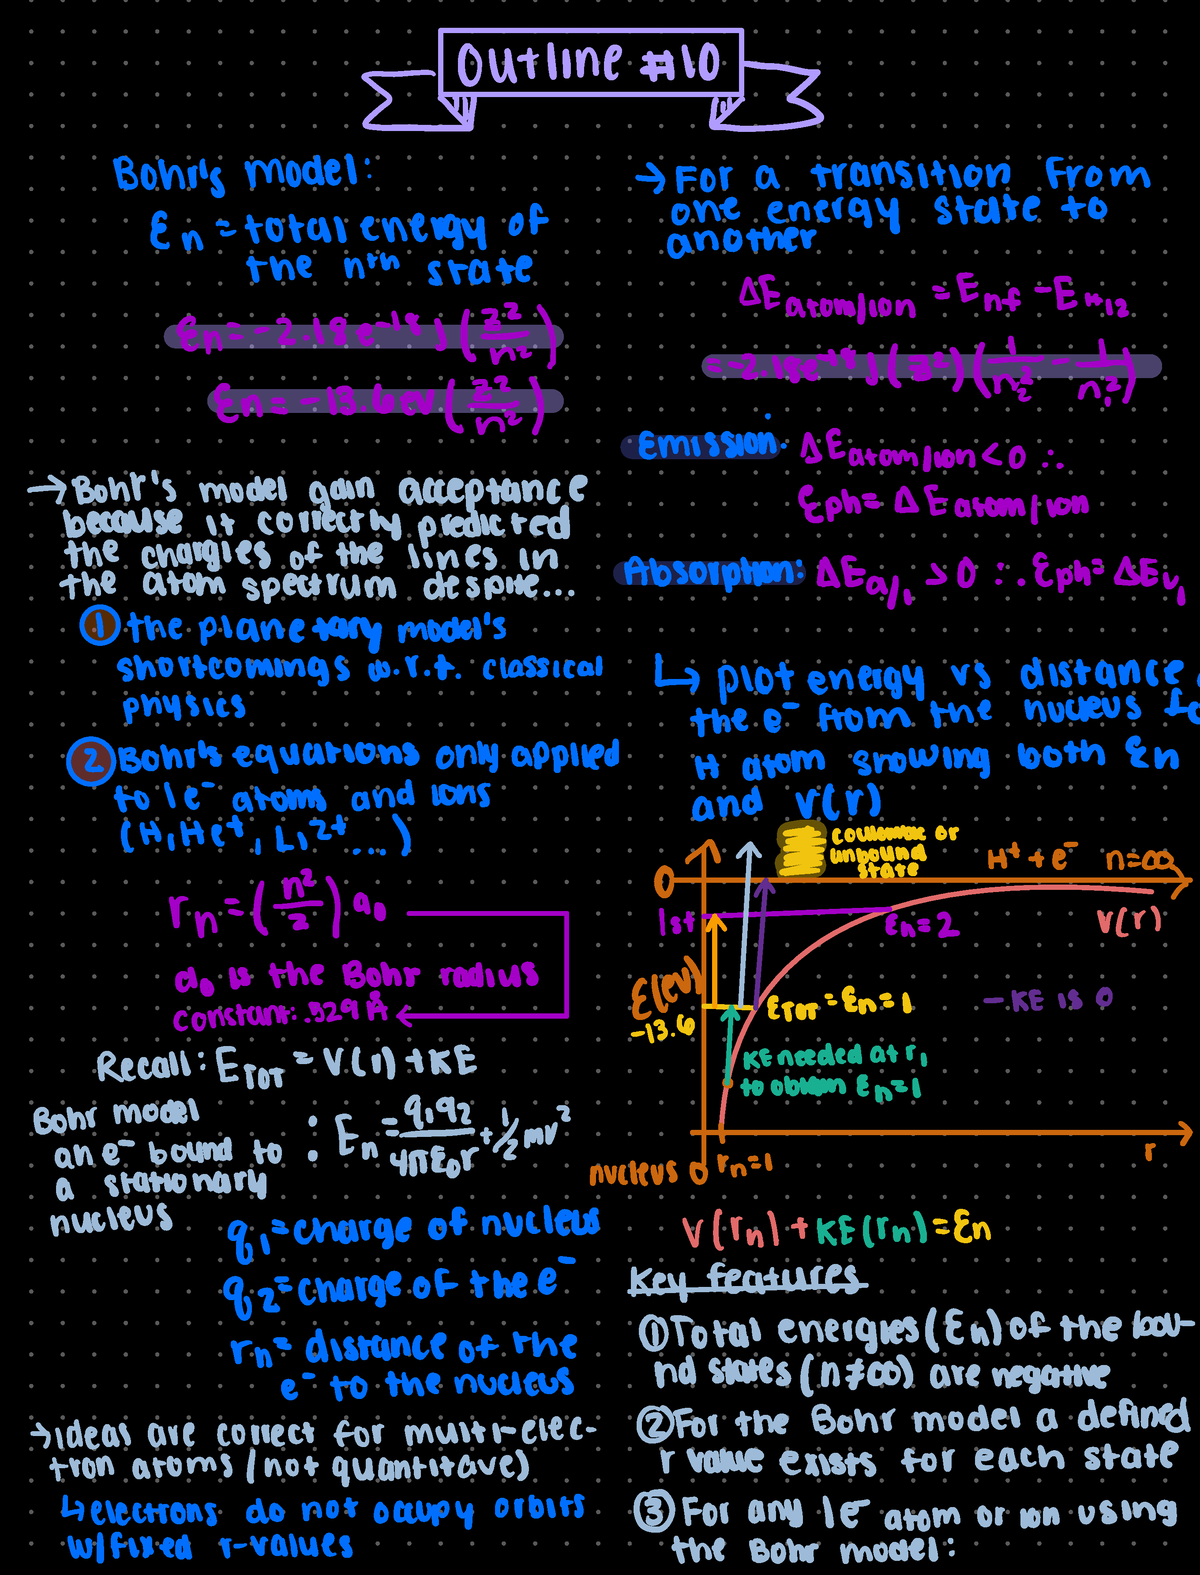 Outline #10
Bohr's model:
En = total energy of
the nth state
En = -2.18e-18 J (z²/n²)
En = -13.6 ev (z²/n²)
→ Bohr's model gain acceptance
because it correctly predicted
the chargies of the lines in
the atom spectrum despite...
① the planetary model's
shortcomings w.r.t. classical
physics
② Bohr's equations only applied
to 1e⁻ atoms and ions
(H, He⁺, Li²⁺...)
rn = (n²/z) a₀
a₀ is the Bohr radius
constant: .529 Å
Recall: ETOT = V(r) + KE
Bohr model
an e⁻ bound to
a stationary
nucleus
: En = q₁q₂/4πε₀r + 1/2 mv²
q₁ = charge of nucleus
q₂ = charge of the e⁻
rn = distance of the
e⁻ to the nucleus
→ ideas are correct for multi-elec-
tron atoms (not quantitave)
↳ electrons do not occupy orbits
w/fixed r-values
→ For a transition from
one energy state to
another
ΔEatom/ion = Enf - En12
= -2.18e-18 J (z²) (1/n₂² - 1/n₁²)
Emission: ΔEatom/ion < 0 ∴
Eph = ΔEatom/ion
Absorption: ΔEa/i > 0 ∴ Eph = ΔE
↳ plot energy vs distance
the e⁻ from the nucleus fo
H atom showing both En
and V(r)
or
unbound
state
H⁺ + e⁻ n=∞
0
1st
En=2
V(r)
E(ev)
-13.6
ETOT = En=1
-KE is 0
KE needed at r₁
to obtain En=1
nucleus 0 rn=1
r
V(rn) + KE(rn) = En
Key features
① Total energies (En) of the bou-
nd states (n≠∞) are negative
② For the Bohr model a defined
r value exists for each state
③ For any 1e⁻ atom or ion using
the Bohr model: